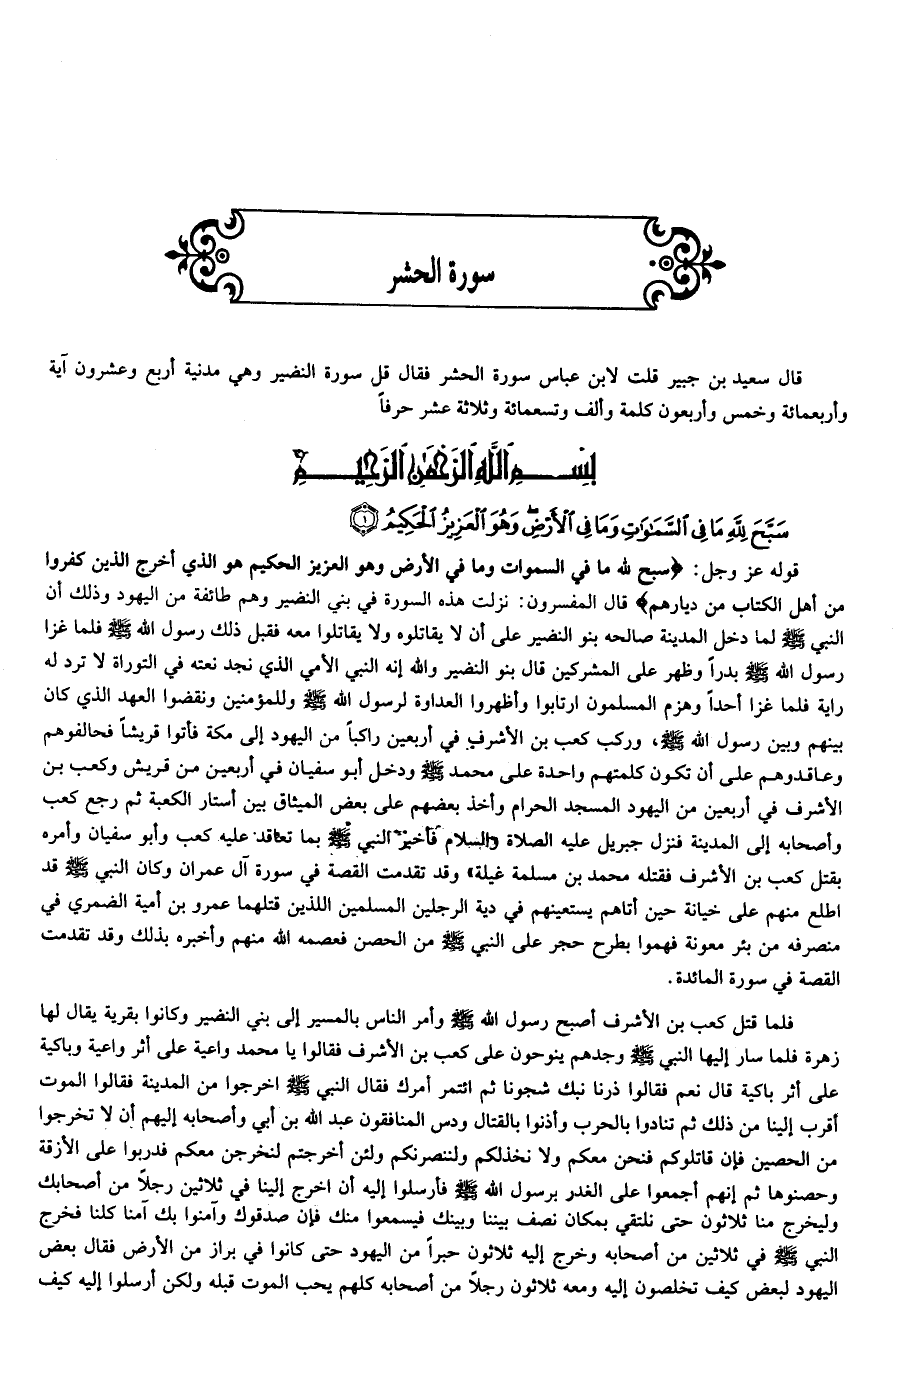 سورة الحشر
قال سعيد بن جبير قلت لابن عباس سورة الحشر فقال قل سورة النضير وهي مدنية أربع وعشرون آية
وأربعمائة وخمس وأربعون كلمة وألف وتسعمائة وثلاثة عشر حرفاً
بِسْمِ ٱللَّهِ ٱلرَّحْمَٰنِ ٱلرَّحِيمِ
سَبَّحَ لِلَّهِ مَا فِي ٱلسَّمَٰوَٰتِ وَمَا فِي ٱلْأَرْضِ وَهُوَ ٱلْعَزِيزُ ٱلْحَكِيمُ ١
قوله عز وجل: ﴿سبح لله ما في السموات وما في الأرض وهو العزيز الحكيم هو الذي أخرج الذين كفروا
من أهل الكتاب من ديارهم﴾ قال المفسرون: نزلت هذه السورة في بني النضير وهم طائفة من اليهود وذلك أن
النبي ﷺ لما دخل المدينة صالحه بنو النضير على أن لا يقاتلوه ولا يقاتلوا معه فقبل ذلك رسول الله ﷺ فلما غزا
رسول الله ﷺ بدراً وظهر على المشركين قال بنو النضير والله إنه النبي الأمي الذي نجد نعته في التوراة لا ترد له
راية فلما غزا أحداً وهزم المسلمون ارتابوا وأظهروا العداوة لرسول الله ﷺ وللمؤمنين ونقضوا العهد الذي كان
بينهم وبين رسول الله ﷺ، وركب كعب بن الأشرف في أربعين راكباً من اليهود إلى مكة فأتوا قريشاً فحالفوهم
وعاقدوهم على أن تكون كلمتهم واحدة على محمد ﷺ ودخل أبو سفيان في أربعين من قريش وكعب بن
الأشرف في أربعين من اليهود المسجد الحرام وأخذ بعضهم على بعض الميثاق بين أستار الكعبة ثم رجع كعب
وأصحابه إلى المدينة فنزل جبريل عليه الصلاة والسلام فأخبر النبي ﷺ بما تعاقد عليه كعب وأبو سفيان وأمره
بقتل كعب بن الأشرف فقتله محمد بن مسلمة غيلة، وقد تقدمت القصة في سورة آل عمران وكان النبي ﷺ قد
اطلع منهم على خيانة حين أتاهم يستعينهم في دية الرجلين المسلمين اللذين قتلهما عمرو بن أمية الضمري في
منصرفه من بئر معونة فهموا بطرح حجر على النبي ﷺ من الحصن فعصمه الله منهم وأخبره بذلك وقد تقدمت
القصة في سورة المائدة.
فلما قتل كعب بن الأشرف أصبح رسول الله ﷺ وأمر الناس بالمسير إلى بني النضير وكانوا بقرية يقال لها
زهرة فلما سار إليها النبي ﷺ وجدهم ينوحون على كعب بن الأشرف فقالوا يا محمد واعية على أثر واعية وباكية
على أثر باكية قال نعم فقالوا ذرنا نبك شجونا ثم ائتمر أمرك فقال النبي ﷺ اخرجوا من المدينة فقالوا الموت
أقرب إلينا من ذلك ثم تنادوا بالحرب وأذنوا بالقتال ودس المنافقون عبد الله بن أبي وأصحابه إليهم أن لا تخرجوا
من الحصين فإن قاتلوكم فنحن معكم ولا نخذلكم ولننصرنكم ولئن أخرجتم لنخرجن معكم فدربوا على الأزقة
وحصنوها ثم إنهم أجمعوا على الغدر برسول الله ﷺ فأرسلوا إليه أن اخرج إلينا في ثلاثين رجلاً من أصحابك
وليخرج منا ثلاثون حتى نلتقي بمكان نصف بيننا وبينك فيسمعوا منك فإن صدقوك وآمنوا بك آمنا كلنا فخرج
النبي ﷺ في ثلاثين من أصحابه وخرج إليه ثلاثون حبراً من اليهود حتى كانوا في براز من الأرض فقال بعض
اليهود لبعض كيف تخلصون إليه ومعه ثلاثون رجلاً من أصحابه كلهم يحب الموت قبله ولكن أرسلوا إليه كيف